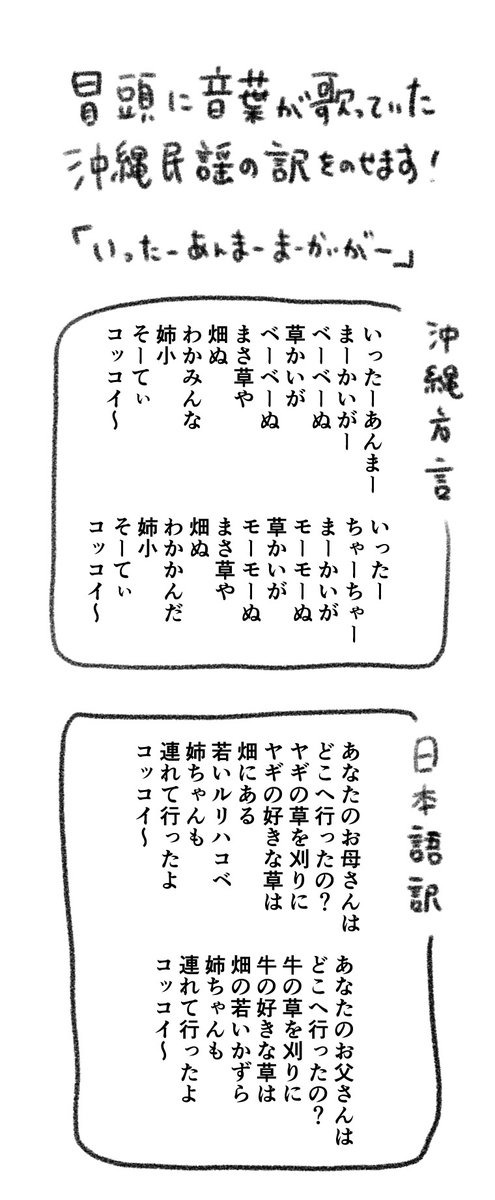 冒頭に音葉が歌っていた
沖縄民謡の訳をのせます!
「いったーあんまーまーかいがー」
沖縄方言
いったーあんまー
まーかいがー
べーべーぬ
草かいが
べーべーぬ
まさ草や
畑ぬ
わかみんな
姉小
そーてぃ
コッコイ〜
いったー
ちゃーちゃー
まーかいが
モーモーぬ
草かいが
モーモーぬ
まさ草や
畑ぬ
わかかんだ
姉小
そーてぃ
コッコイ〜
日本語訳
あなたのお母さんは
どこへ行ったの?
ヤギの草を刈りに
ヤギの好きな草は
畑にある
若いルリハコベ
姉ちゃんも
連れて行ったよ
コッコイ〜
あなたのお父さんは
どこへ行ったの?
牛の草を刈りに
牛の好きな草は
畑の若いかずら
姉ちゃんも
連れて行ったよ
コッコイ〜